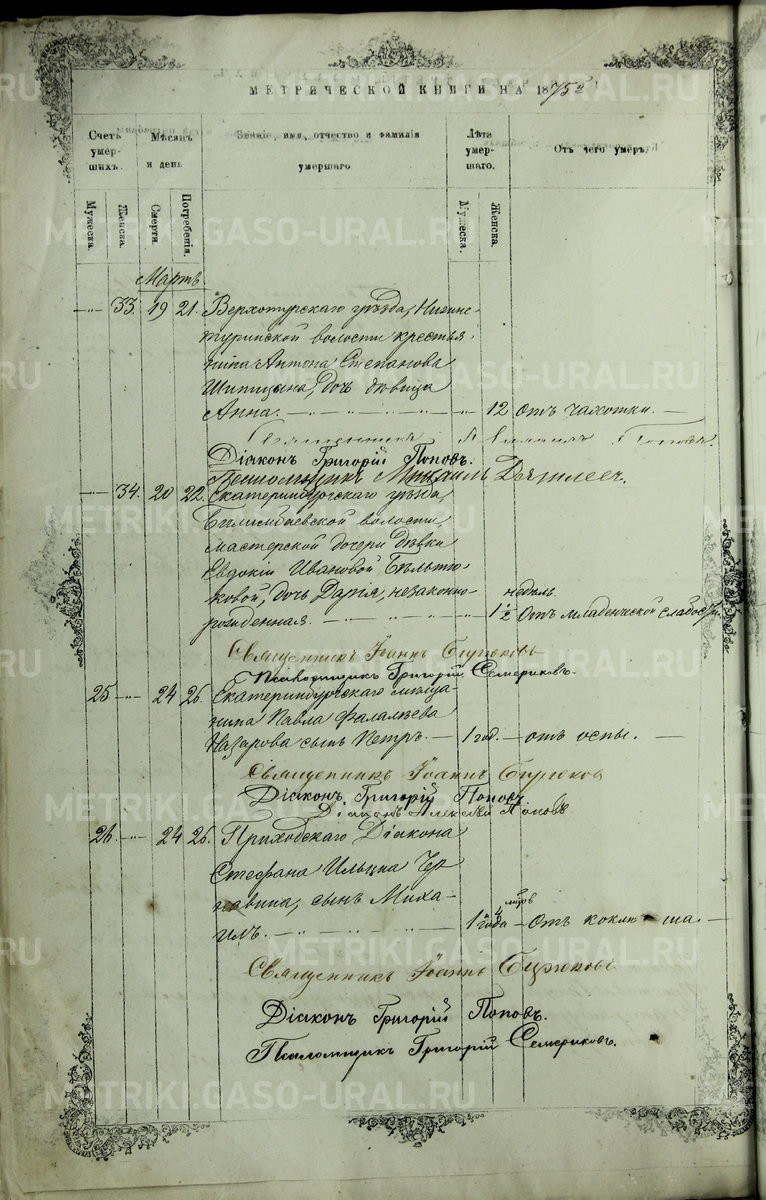 МЕТРИЧЕСКОЙ КНИГИ НА 1875й
Счетъ умер- шихъ.
Мѣсяцъ и день
Званіе, имя, отчество и фамилія умершаго
Лѣта умер- шаго.
Отъ чего умеръ
Мужеска.
Женска.
Смерти.
Погребенія.
Мужеска.
Женска.
Мартъ
33. 19 21. Верхотурскаго уѣзда, Нижне-
туринской волости крестья-
нина Антона Степанова
Шипицына, дочь дѣвица
Анна. 12 отъ чахотки.
Священникъ Поповъ.
Діаконъ Григорій Поповъ.
Псаломщикъ Михаилъ
34. 20 22. Екатеринбургскаго уѣзда,
Билимбаевской волости
мастерской дочери дѣвки
Евдокіи Ивановой Бѣльтю-
ковой, дочь Дарія, незаконно-
недѣль
рожденная. 1½ Отъ младенческой слабости
Священникъ Іоаннъ Бирюковъ
Псаломщикъ Григорій Семериковъ.
25 24 26. Екатеринбургскаго мѣща-
нина Павла Фалалѣева
Назарова сынъ Петръ. 1 год. отъ оспы.
Священникъ Іоаннъ Бирюковъ
Діаконъ Григорій Поповъ
Діаконъ Алексѣй Поповъ
26. 24 26. Приходскаго Діакона
Стефана Ильина Чер-
навина, сынъ Миха-
илъ. 1 года Отъ коклюша.
Священникъ Іоаннъ Бирюковъ
Діаконъ Григорій Поповъ.
Псаломщикъ Григорій Семериковъ.
METRIKI.GASO-URAL.RU